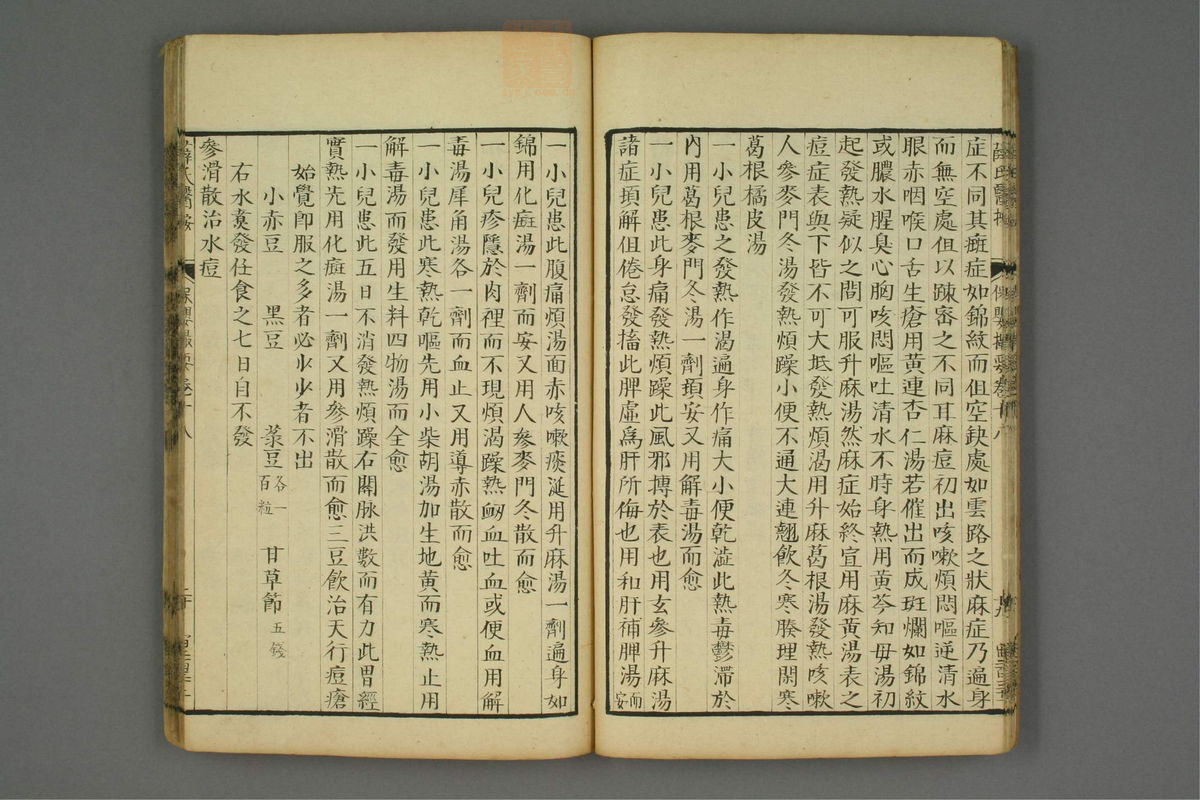 症不同其癍症如錦紋而但空缺處如雲路之狀麻症乃遍身
而無空處但以踈密之不同耳麻痘初出咳嗽煩悶嘔逆清水
眼赤咽喉口舌生瘡用黄連杏仁湯若催出而成斑爛如錦紋
或膿水腥臭心胸咳悶嘔吐清水不時身熱用黄芩知毋湯初
起發熱疑似之間可服升麻湯然麻症始終宜用麻黄湯表之
痘症表與下皆不可大抵發熱煩渴用升麻葛根湯發熱咳嗽
人參麥門冬湯發熱煩躁小便不通大連翹飲冬寒腠理閉寒
葛根橘皮湯
一小兒患之發熱作渴遍身作痛大小便乾澁此熱毒鬱滯於
內用葛根麥門冬湯一劑頓安又用解毒湯而愈
一小兒患此身痛發熱煩躁此風邪搏於表也用玄參升麻湯
諸症頓解但倦怠發搐此脾虛爲肝所侮也用和肝補脾湯而安
一小兒患此腹痛煩渴面赤咳嗽痰涎用升麻湯一劑遍身如
錦用化癍湯一劑而安又用人參麥門冬散而愈
一小兒疹隱於肉裡而不現煩渴躁熱衂血吐血或便血用解
毒湯犀角湯各一劑而血止又用導赤散而愈
一小兒患此寒熱乾嘔先用小柴胡湯加生地黄而寒熱止用
解毒湯而發用生料四物湯而全愈
一小兒患此五日不消發熱煩躁右關脉洪數而有力此胃經
實熱先用化癍湯一劑又用參滑散而愈三豆飲治天行痘瘡
始覺卽服之多者必少少者不出
小赤豆 黑豆 菉豆各一百粒 甘草節五錢
右水煑發任食之七日自不發
參滑散治水痘